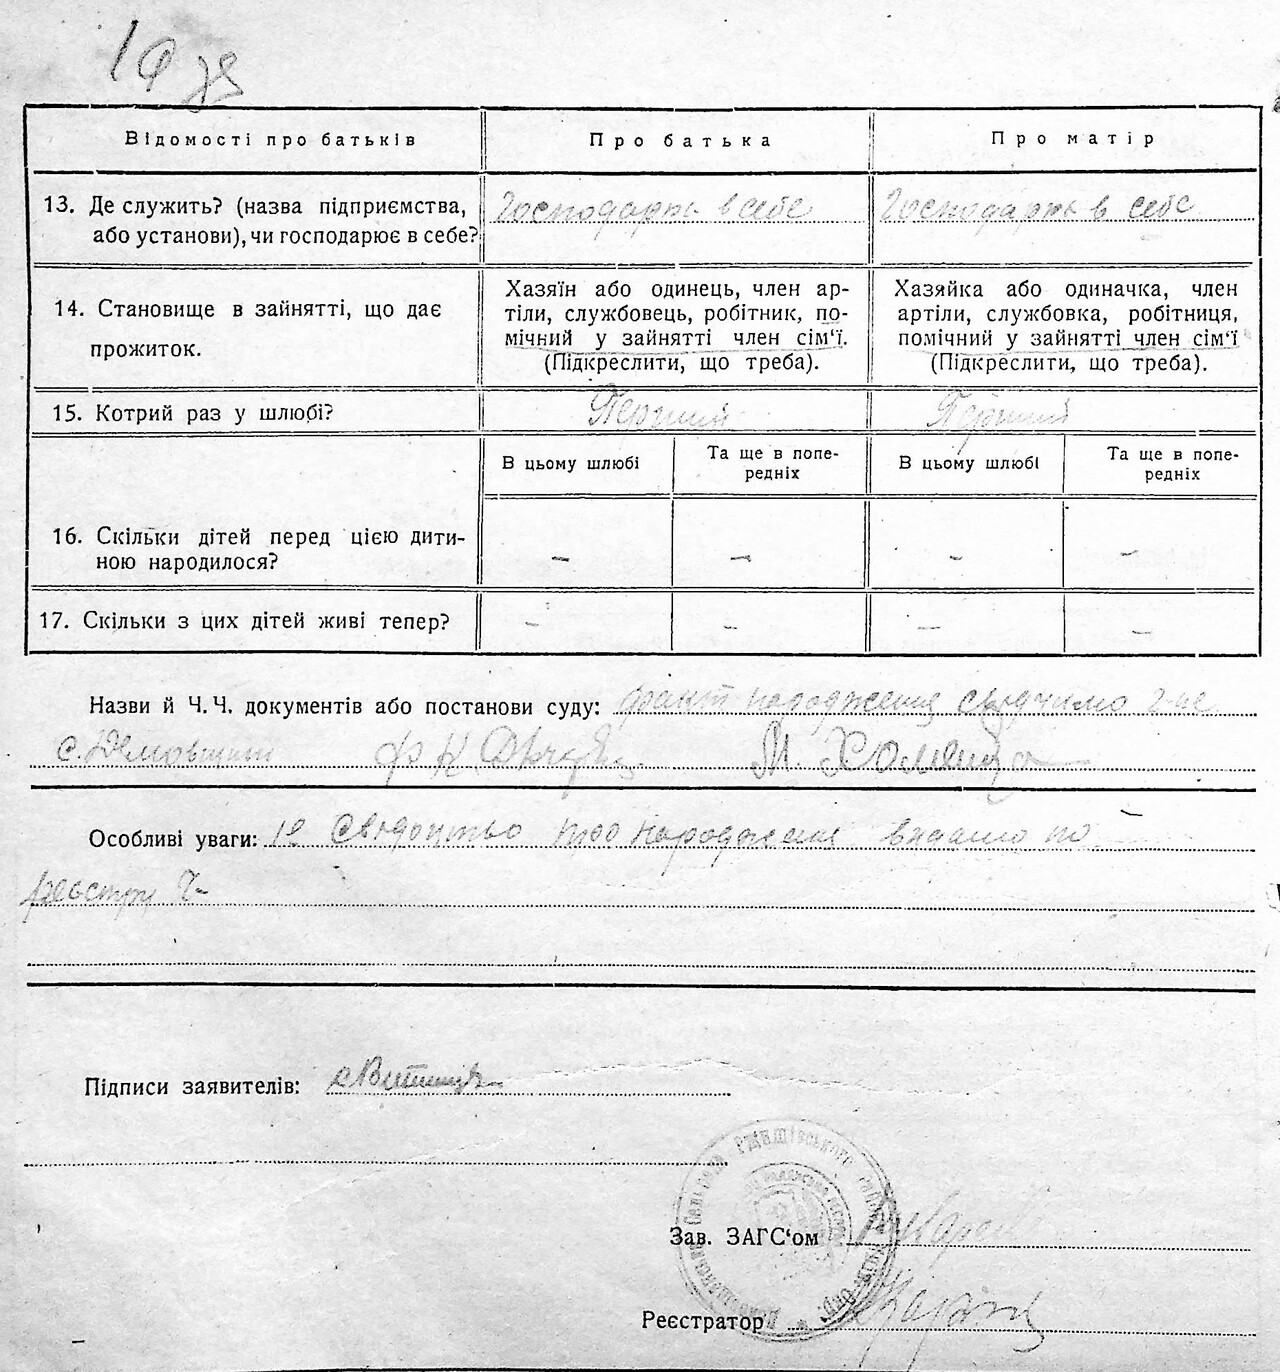 Відомості про батьків
Про батька
Про матір
13. Де служить? (назва підприємства, або установи), чи господарює в себе?
Господарть в себе
Господарть в себе
14. Становище в зайнятті, що дає прожиток.
Хазяїн або одинець, член ар-
тіли, службовець, робітник, по-
мічний у зайнятті член сім‘ї.
(Підкреслити, що треба).
Хазяйка або одиначка, член
артіли, службовка, робітниця,
помічний у зайнятті член сім‘ї
(Підкреслити, що треба).
15. Котрий раз у шлюбі?
Перший
Перший
В цьому шлюбі
Та ще в попе-
редніх
В цьому шлюбі
Та ще в попе-
редніх
16. Скільки дітей перед цією дити-
ною народилося?
–
–
–
–
17. Скільки з цих дітей живі тепер?
–
–
–
–
Назви й Ч. Ч. документів або постанови суду: факт народження свідчимо
М. Хоменко
Особливі уваги: Свідоцтво про народження видано по
реєстру Ч-
Підписи заявителів:
Зав. ЗАГС‘ом
Реєстратор